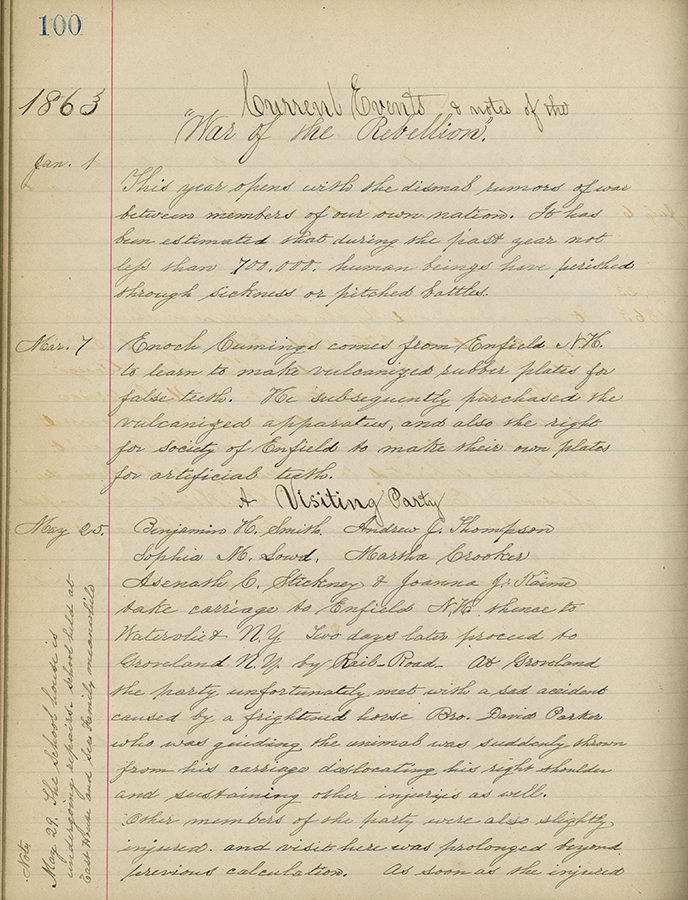 100
1863
Current Events & notes of the
"War of the Rebellion".
Jan. 1
This year opens with the dismal rumors of war
between members of our own nation. It has
been estimated that during the past year not
less than 700,000. human beings have perished
through sickness or pitched battles.
Mar. 7
Enoch Cumings comes from Enfield N.H.
to learn to make vulcanized rubber plates for
false teeth. He subsequently purchased the
vulcanized apparatus, and also the right
for society of Enfield to make their own plates
for artificial teeth.
A Visiting Party
May 25.
Benjamin H. Smith, Andrew J. Thompson
Sophia M. Lowd, Martha Crooker
Asenath C. Stickney & Joanna J. Kaime
take carriage to Enfield N.H. thence to
Watervliet N.Y. Two days later proceed to
Groveland N.Y. by Rail-Road. At Groveland
the party unfortunately met with a sad accident
caused by a frightened horse Bro. David Parker
who was guiding the animal was suddenly thrown
from his carriage dislocating his right shoulder
and sustaining other injuries as well.
Other members of the party were also slightly
injured. and visit here was prolonged beyond
previous calculation. As soon as the injured
Note
May 29. The School house is
undergoing repairs. School held at
East House and Sec. Family meanwhile